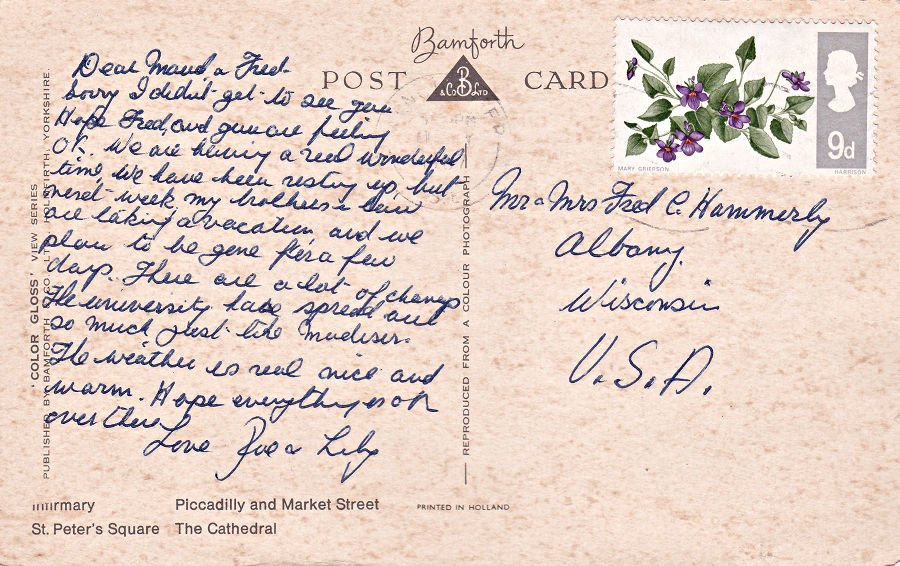 Bamforth
POST CARD
B
& Co LTD
Dear Maud & Fred-
Sorry I didn't get to see you
Hope Fred, and you are feeling
OK. We are having a real wonderful
time, we have been resting up, but
next week my brothers in law
are taking a vacation and we
plan to be gone for a few
days. There are a lot of changes
The university have spread out
so much just like Madison.
The weather is real nice and
warm. Hope everything is ok
over there
Love Joe & Lily
MARY GRIERSON
HARRISON
9d
Mr & Mrs Fred C. Hammerly
Albany.
Wisconsin
U.S.A.
'COLOR GLOSS' VIEW SERIES
PUBLISHED BY BAMFORTH & CO. LTD. HOLMFIRTH, YORKSHIRE.
REPRODUCED FROM A COLOUR PHOTOGRAPH
Infirmary Piccadilly and Market Street
St. Peter's Square The Cathedral
PRINTED IN HOLLAND